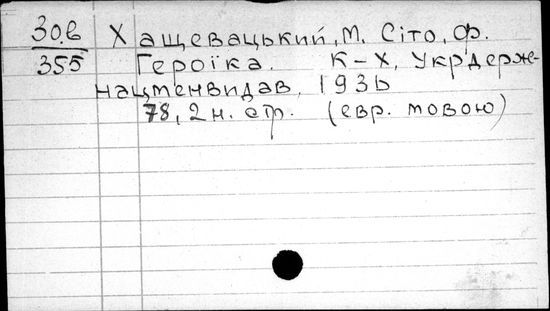 30.в Хащевацький, М. Сіто, Ф.
355 Героїка. К-Х, Укрдерж-
нацменвидав, 1936
78, 2 н. стр. (євр. мовою)